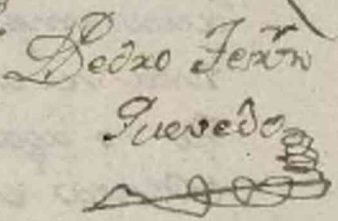 Pedro Fern
Quevedo